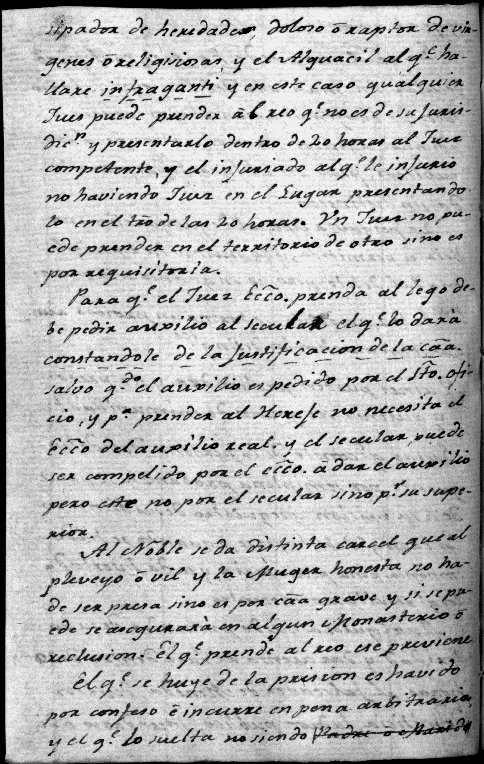 sipador de heredades doloso ō raptor de vir-
genes ō religiosas, y el Alguacil al q.e ha-
llare infraganti y en este caso qualquier
Juez puede prender āl reo q.e no es de su Juris-
dic.n y presentarlo dentro de 20 horas al Juez
competente, y el injuriado al q.e le injurio
no haviendo Juez en el Lugar presentando
lo en el tr̄o de las 20 horas. Vn Juez no pu-
ede prender en el territorio de otro sino es
por requisitoria.
Para q.e el Juez Ecc̄o. prenda al lego de-
be pedir auxilio al secular el q.e lo darà
constandole de la Justificacion de la cāa.
salvo q.do el auxilio es pedido por el St̄o. ofi-
cio, y p.a prender al Hereje no necesita el
Ecc̄o del auxilio real. y el secular puede
ser compelido por el ecc̄o. ā dar el auxilio
pero este no por el secular sino p.r su supe-
rior.
Al Noble se da distinta carcel que al
pleveyo ō vil y la Muger honesta no ha-
de ser presa sino es por cāa grave y si se pu-
ede se asegurarà en algun Monasterio ō
reclusion. El q.e prende al reo ese previene
El q.e se huye de la prision es havido
por confeso ē incurre en pena arbitraria,
y el q.e lo suelta no siendo Padre ō Marido